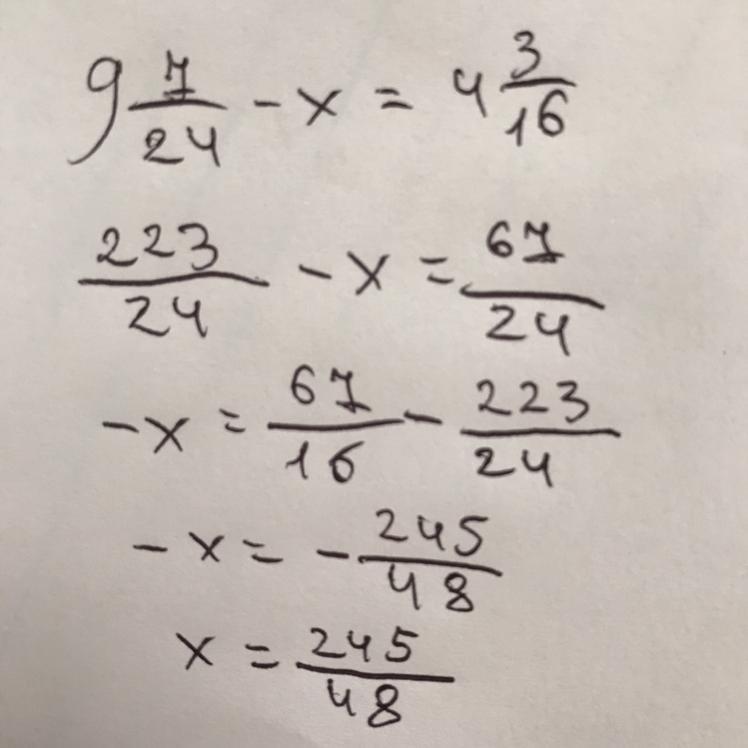 9 7/24 - x = 4 3/16
223/24 - x = 67/24
-x = 67/16 - 223/24
-x = - 245/48
x = 245/48